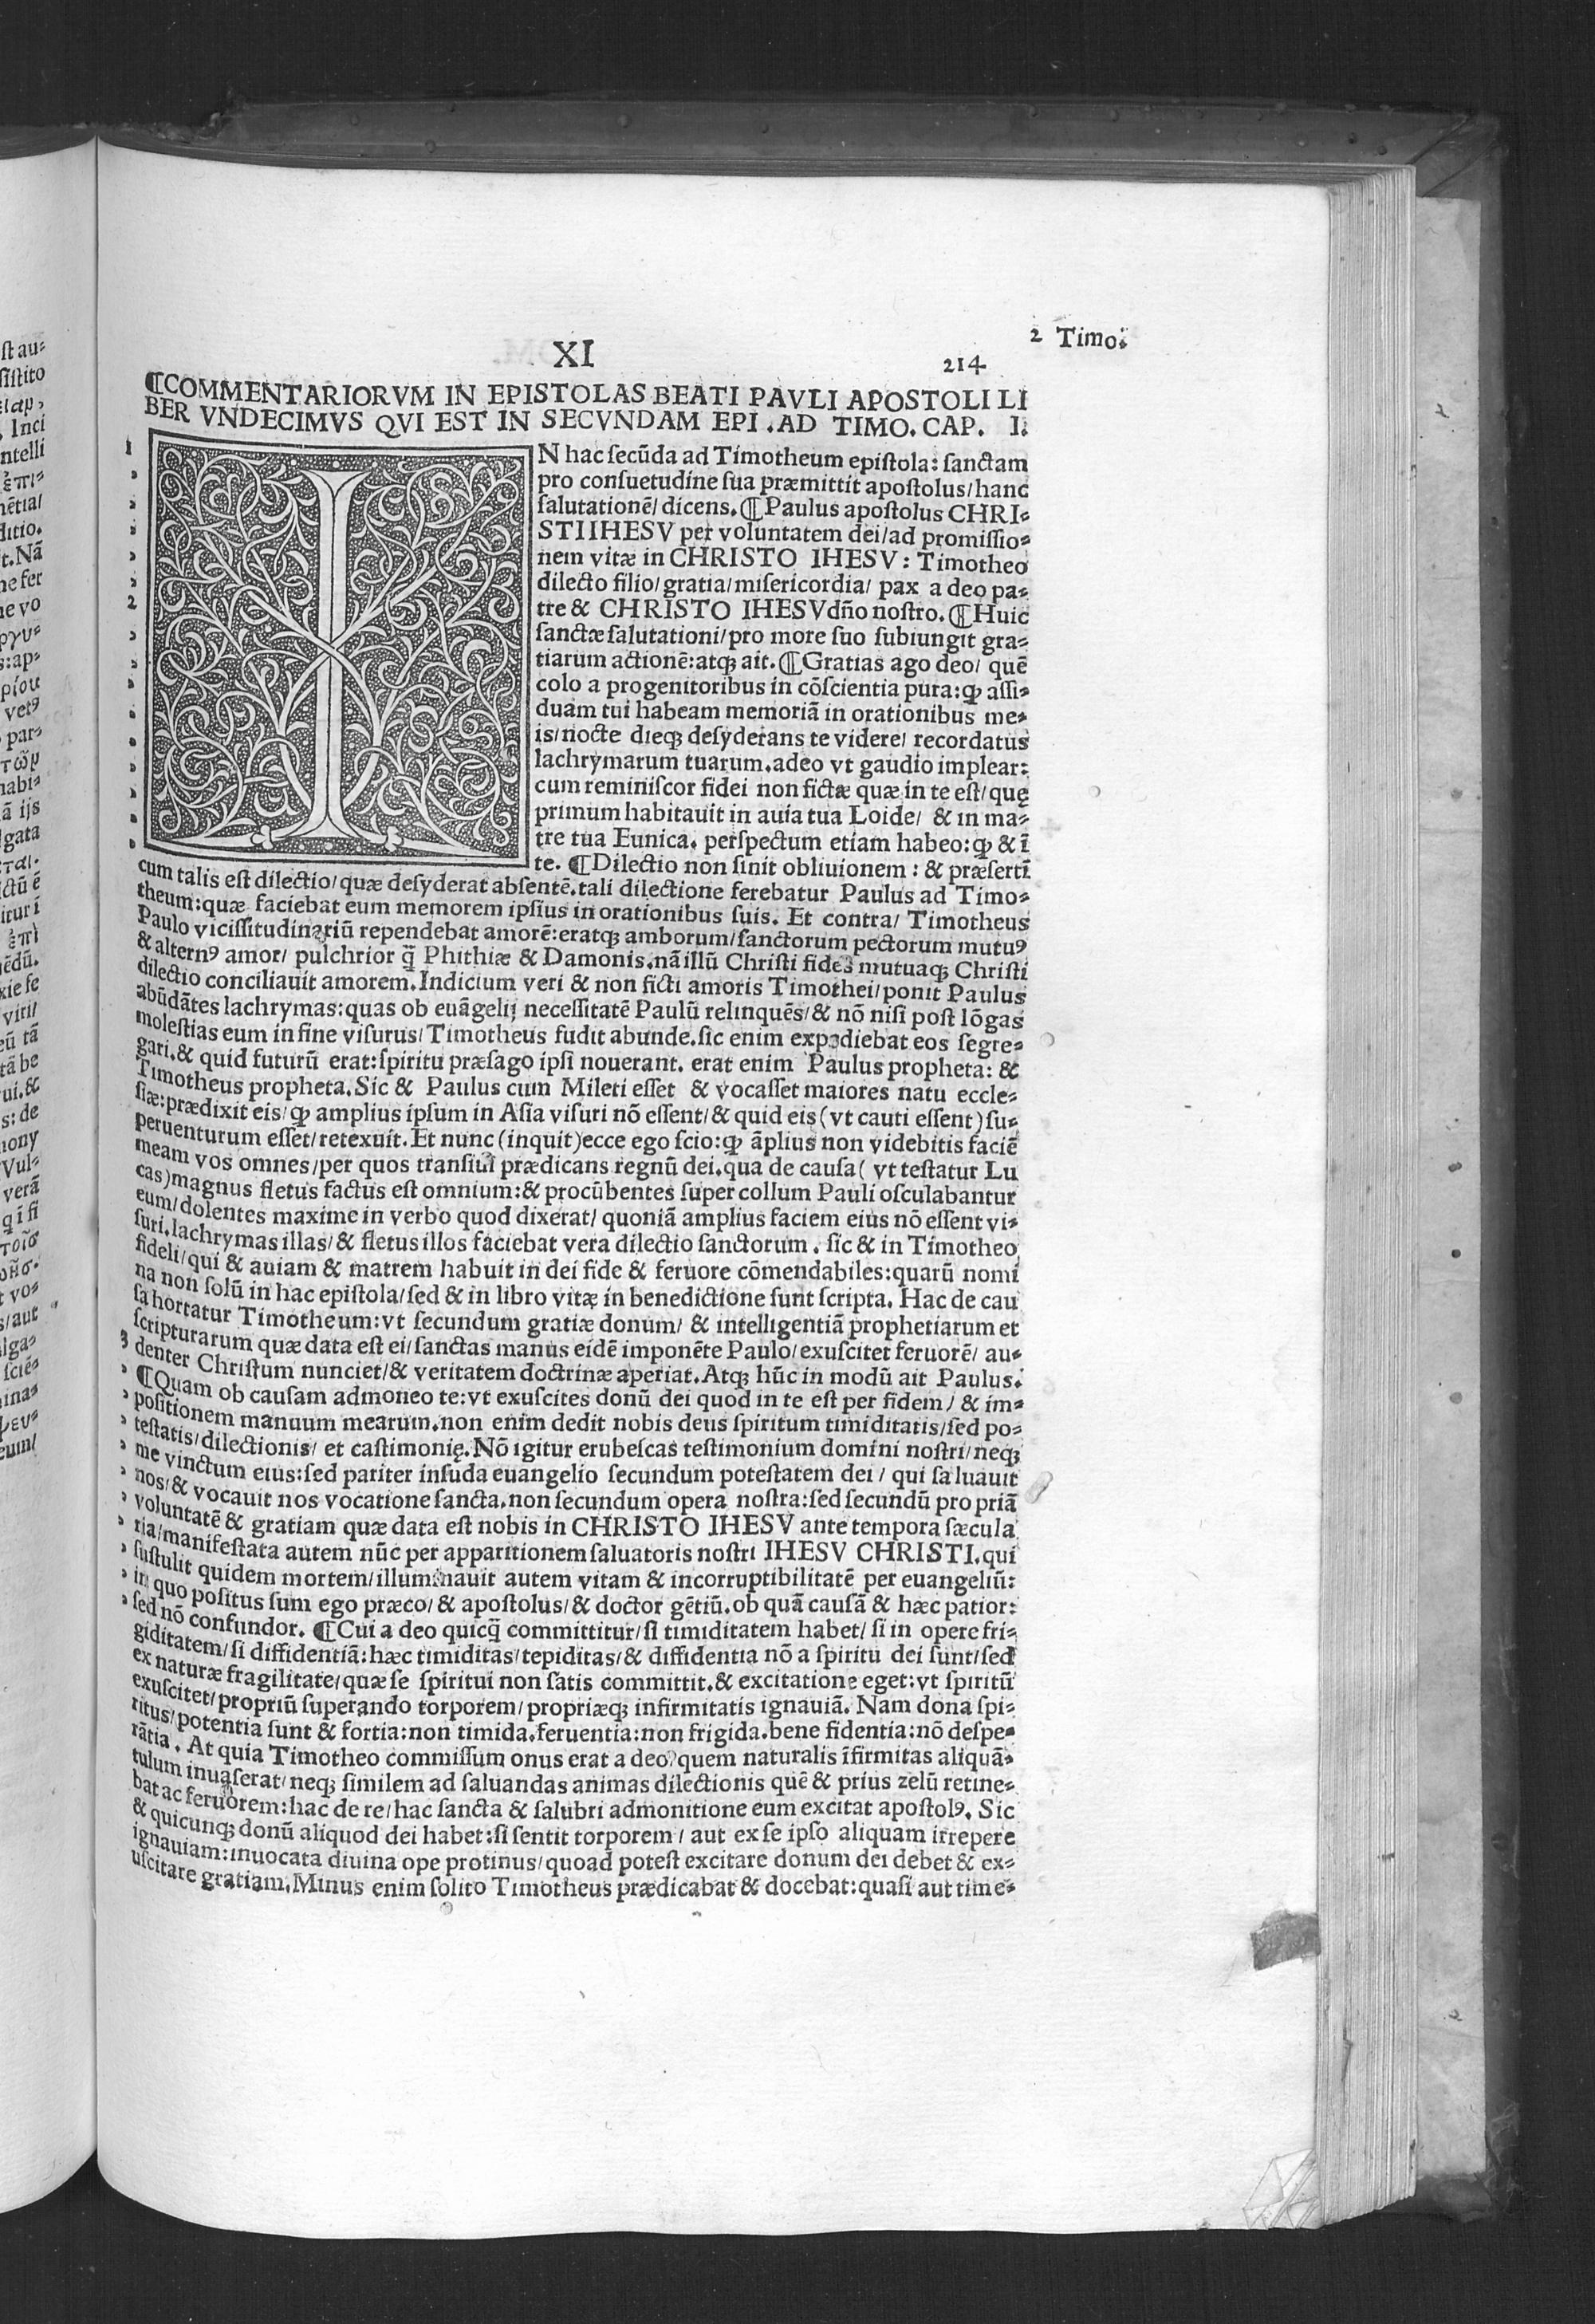 2 Timo.
XI
214
¶COMMENTARIORVM IN EPISTOLAS BEATI PAVLI APOSTOLI LI
BER VNDECIMVS QVI EST IN SECVNDAM EPI. AD TIMO. CAP. I.
IN hac secūda ad Timotheum epistola: sanctam
pro consuetudine sua præmittit apostolus/hanc
salutationē/ dicens. ¶Paulus apostolus CHRI-
STI IHESV per voluntatem dei/ad promissio-
nem vitæ in CHRISTO IHESV: Timotheo
dilecto filio/gratia/misericordia/ pax a deo pa-
tre & CHRISTO IHESV dño nostro. ¶Huic
sanctæ salutationi/pro more suo subiungit gra-
tiarum actionē:atqꝫ ait. ¶Gratias ago deo/ quē
colo a progenitoribus in cōscientia pura:ꝙ assi-
duam tui habeam memoriā in orationibus me-
is/nocte dieqꝫ desyderans te videre/ recordatus
lachrymarum tuarum.adeo vt gaudio implear:
cum reminiscor fidei non fictæ quæ in te est/quę
primum habitauit in auia tua Loide/ & in ma-
tre tua Eunica. perspectum etiam habeo:ꝙ & ī
te. ¶Dilectio non sinit obliuionem: & præsertī
cum talis est dilectio/quæ desyderat absentē.tali dilectione ferebatur Paulus ad Timo-
theum:quæ faciebat eum memorem ipsius in orationibus suis. Et contra/ Timotheus
Paulo vicissitudinariū rependebat amorē:eratqꝫ amborum/sanctorum pectorum mutuꝰ
& alternꝰ amor/ pulchrior q̄ Phithiæ & Damonis.nā illū Christi fides mutuaqꝫ Christi
dilectio conciliauit amorem. Indicium veri & non ficti amoris Timothei/ponit Paulus
abūdātes lachrymas:quas ob euāgelij necessitatē Paulū relinquēs/& nō nisi post lōgas
molestias eum in fine visurus/Timotheus fudit abunde.sic enim expediebat eos segre-
gari.& quid futurū erat:spiritu præsago ipsi nouerant. erat enim Paulus propheta: &
Timotheus propheta. Sic & Paulus cum Mileti esset & vocasset maiores natu eccle-
siæ:prædixit eis/ꝙ amplius ipsum in Asia visuri nō essent/& quid eis (vt cauti essent) su-
peruenturum esset/retexuit. Et nunc (inquit) ecce ego scio:ꝙ āplius non videbitis faciē
meam vos omnes/per quos transiui prædicans regnū dei.qua de causa (vt testatur Lu
cas) magnus fletus factus est omnium:& procūbentes super collum Pauli osculabantur
eum/dolentes maxime in verbo quod dixerat/ quoniā amplius faciem eius nō essent vi-
suri.lachrymas illas/& fletus illos faciebat vera dilectio sanctorum. sic & in Timotheo
fideli/qui & auiam & matrem habuit in dei fide & feruore cōmendabiles:quarū nomi
na non solū in hac epistola/sed & in libro vitæ in benedictione sunt scripta. Hac de cau
sa hortatur Timotheum:vt secundum gratiæ donum/ & intelligentiā prophetiarum et
scripturarum quæ data est ei/sanctas manus eidē imponēte Paulo/exuscitet feruorē/ au-
denter Christum nunciet/& veritatem doctrinæ aperiat. Atqꝫ hūc in modū ait Paulus.
¶Quam ob causam admoneo te:vt exuscites donū dei quod in te est per fidem/ & im-
positionem manuum mearum.non enim dedit nobis deus spiritum timiditatis/sed po-
testatis/dilectionis/ et castimonię. Nō igitur erubescas testimonium domini nostri/neqꝫ
me vinctum eius:sed pariter insuda euangelio secundum potestatem dei/ qui saluauit
nos/& vocauit nos vocatione sancta.non secundum opera nostra:sed secundū propriā
voluntatē & gratiam quæ data est nobis in CHRISTO IHESV ante tempora sæcula
ria/manifestata autem nūc per apparitionem saluatoris nostri IHESV CHRISTI.qui
sustulit quidem mortem/illuminauit autem vitam & incorruptibilitatē per euangeliū:
in quo positus sum ego præco/& apostolus/& doctor gētiū.ob quā causā & hæc patior:
sed nō confundor. ¶Cui a deo quicq̄ committitur/si timiditatem habet/ si in opere fri-
giditatem/si diffidentiā:hæc timiditas/tepiditas/& diffidentia nō a spiritu dei sunt/sed
ex naturæ fragilitate/quæ se spiritui non satis committit.& excitatione eget:vt spiritū
exuscitet/propriū superando torporem/propriæqꝫ infirmitatis ignauiā. Nam dona spi-
ritus/potentia sunt & fortia:non timida.feruentia:non frigida.bene fidentia:nō despe-
rātia. At quia Timotheo commissum onus erat a deo/quem naturalis īfirmitas aliquā-
tulum inuaserat/neqꝫ similem ad saluandas animas dilectionis quē & prius zelū retine-
bat ac feruorem:hac de re/hac sancta & salubri admonitione eum excitat apostolꝰ. Sic
& quicunqꝫ donū aliquod dei habet:si sentit torporem/ aut ex se ipso aliquam irrepere
ignauiam:inuocata diuina ope protinus/quoad potest excitare donum dei debet & ex-
uscitare gratiam. Minus enim solito Timotheus prædicabat & docebat:quasi aut time-